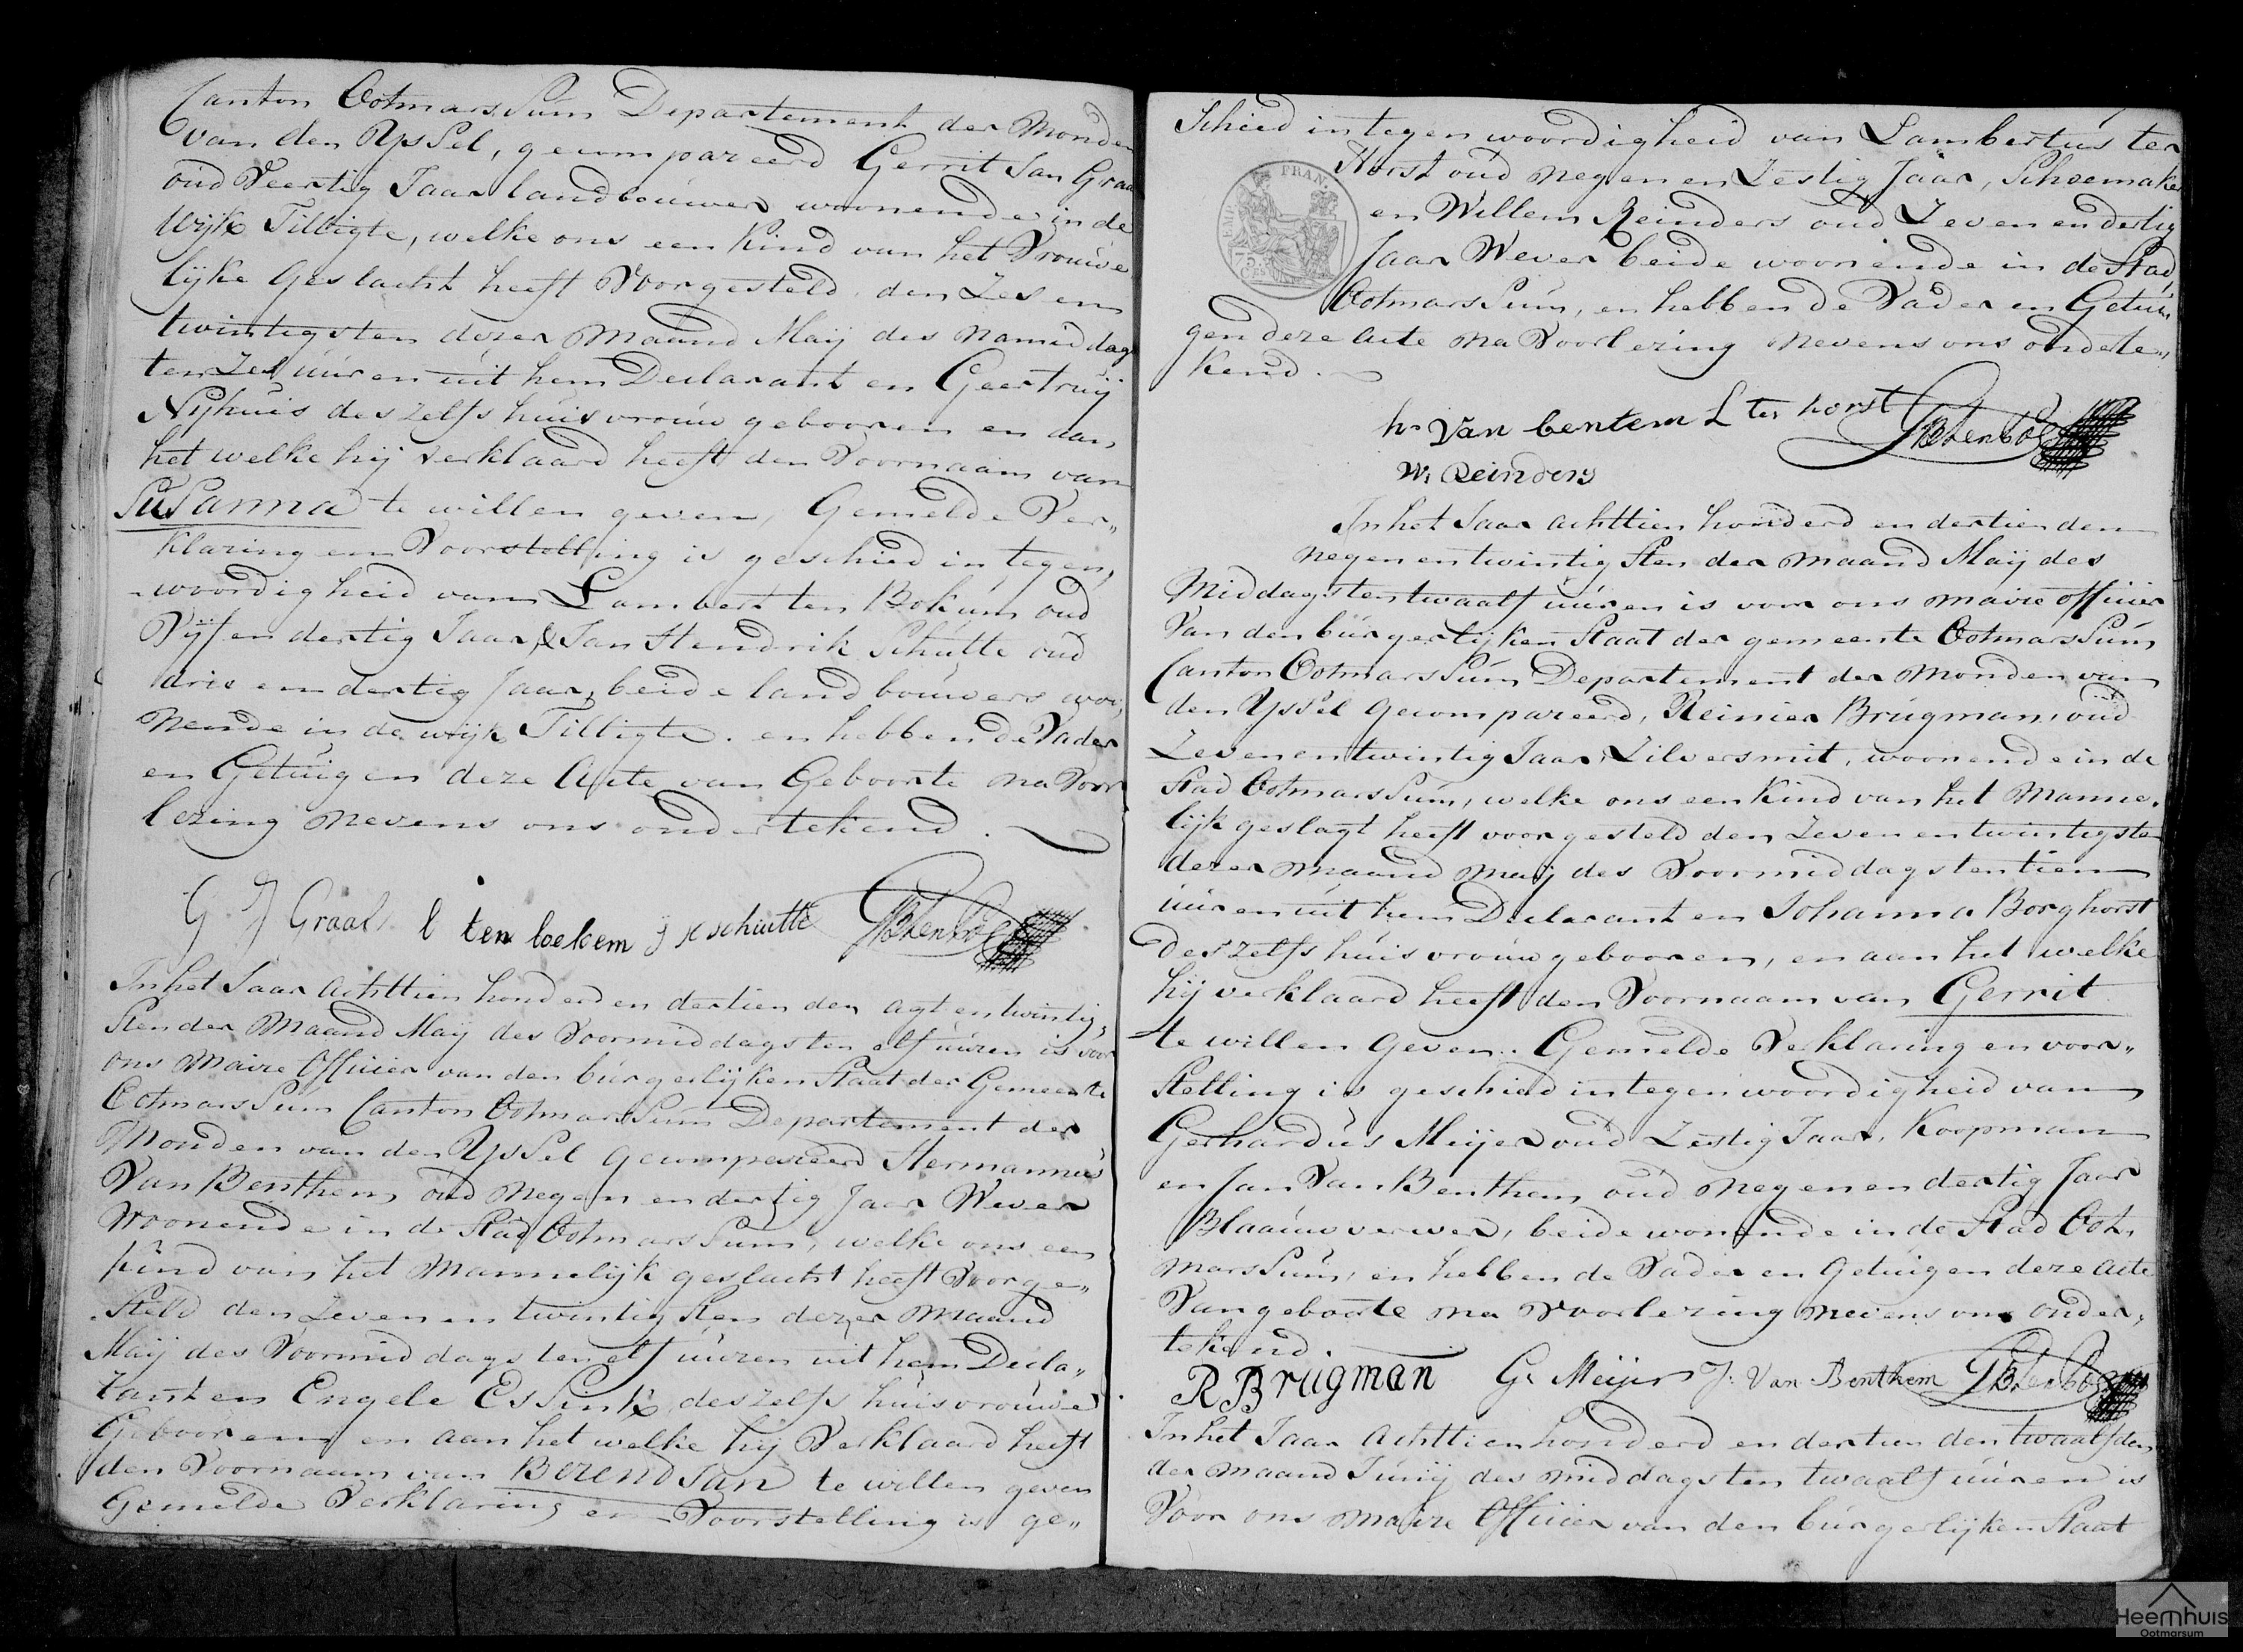 Canton Ootmarssum Departement der Monden
van den Yssel, gecompareerd Gerrit Jan Graa
oud Veertig Jaar landbouwer woonende in de
Wijk Tilligte, welke ons een Kind van het Vrouwe
lijke Geslacht heeft Voorgesteld, den Zes en
twintigsten dezer Maand Maij des Namiddags
ten Zes uuren uit hem Declarant en Geertruij
Nijhuis deszelfs huisvrouw gebooren en aan
het welke hij verklaard heeft den Voornaam van
Susanna te willen geven, Gemelde Ver„
klaring en Voorstelling is geschied in tegen„
woordigheid van Lambert ten Bokum oud
Vijf en dertig Jaar, & Jan Hendrik Schutte oud
drie en dertig Jaar, beide landbouwers woo„
nende in de wijk Tilligte. en hebben de Vader
en Getuigen deze Acte van Geboorte na Voor
lezing nevens ons ondertekend.
G J Graa l ten boekem j H schutte
In het Jaar Achttien honderd en dertien den agt en twintig„
sten der Maand Maij des Voormiddags ten elf uuren is voor
ons Maire Officier van den burgerlijken Staat der Gemeente
Ootmarssum Canton Ootmarssum Departement der
Monden van den Yssel Gecompareerd Hermannus
Van Benthem oud Negen en dertig Jaar Wever
Woonende in de Stad Ootmarssum, welke ons een
kind van het Mannelijk geslacht heeft Voorge„
steld den Zeven en twintigsten dezer Maand
Maij des Voormiddags ten elf uuren uit hem Decla„
rant en Engele Essink deszelfs huisvrouwe
Gebooren en aan het welke hij Verklaard heeft
den Voornaam van Berend Jan te willen geven
Gemelde Verklaring en Voorstelling is ge„
Schied in tegenwoordigheid van Lambertus ter
Horst oud Negen en Zestig Jaar, Schoemaker
en Willem Reinders oud Zeven en dertig
Jaar Wever beide woonende in de Stad
Ootmarssum, en hebben de Vader en Getui
gen deze Acte na Voorlezing nevens ons onderte„
kend.
FRAN.
75
CES
hr van bentem L ter horst
W. Reinders
In het Jaar achttien honderd en dertien den
negen en twintigsten der maand Maij des
Middags ten twaalf uuren is voor ons maire officier
Van den burgerlijken Staat der gemeente Ootmarssum
Canton Ootmarssum Departement der Monden van
den Yssel Gecompareerd, Reinier Brugman, oud
Zeven en twintig Jaar, Zilversmit, woonende in de
Stad Ootmarssum, welke ons een Kind van het Manne„
lijk geslagt heeft voorgesteld den Zeven en twintigsten
dezer Maand Maij des Voormiddags ten tien
uuren uit hem Declarant en Johanna Borghorst
deszelfs huisvrouw gebooren, en aan het welke
hij verklaard heeft den Voornaam van Gerrit
te willen Geven. Gemelde Verklaring en voor„
stelling is geschied in tegenwoordigheid van
Gerhardus Meijer oud Zestig Jaar, Koopman
en Jan Van Benthem oud Negen en dertig Jaar
Blaauwverwer, beide wonende in de Stad Oot„
marssum, en hebben de Vader en Getuigen deze Acte
Van geboorte na Voorlezing nevens ons onder„
tekend
R Brugman G. Meijer J. Van Benthem
In het Jaar Achttien honderd en dertien den twaalfden
der maand Junij des middags ten twaalf uuren is
Voor ons maire Officier van den burgerlijken Staat
Heemhuis
Ootmarsum